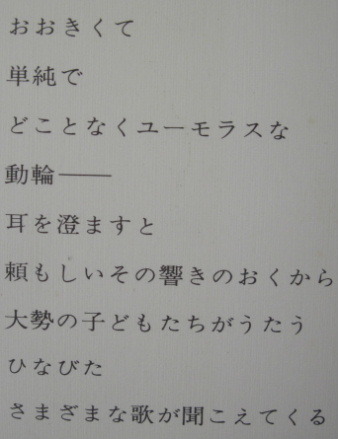 おおきくて
単純で
どことなくユーモラスな
動輪——
耳を澄ますと
頼もしいその響きのおくから
大勢の子どもたちがうたう
ひなびた
さまざまな歌が聞こえてくる